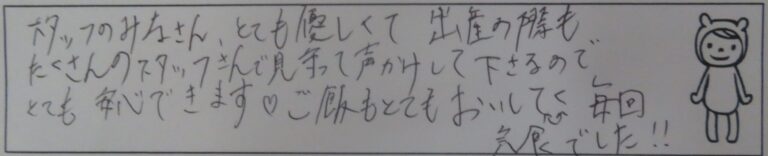 スタッフのみなさん、とても優しくて 出産の際も
たくさんのスタッフさんで見守って声かけして下さるので
とても安心できます♡ご飯もとてもおいしくて 毎回
完食でした!!